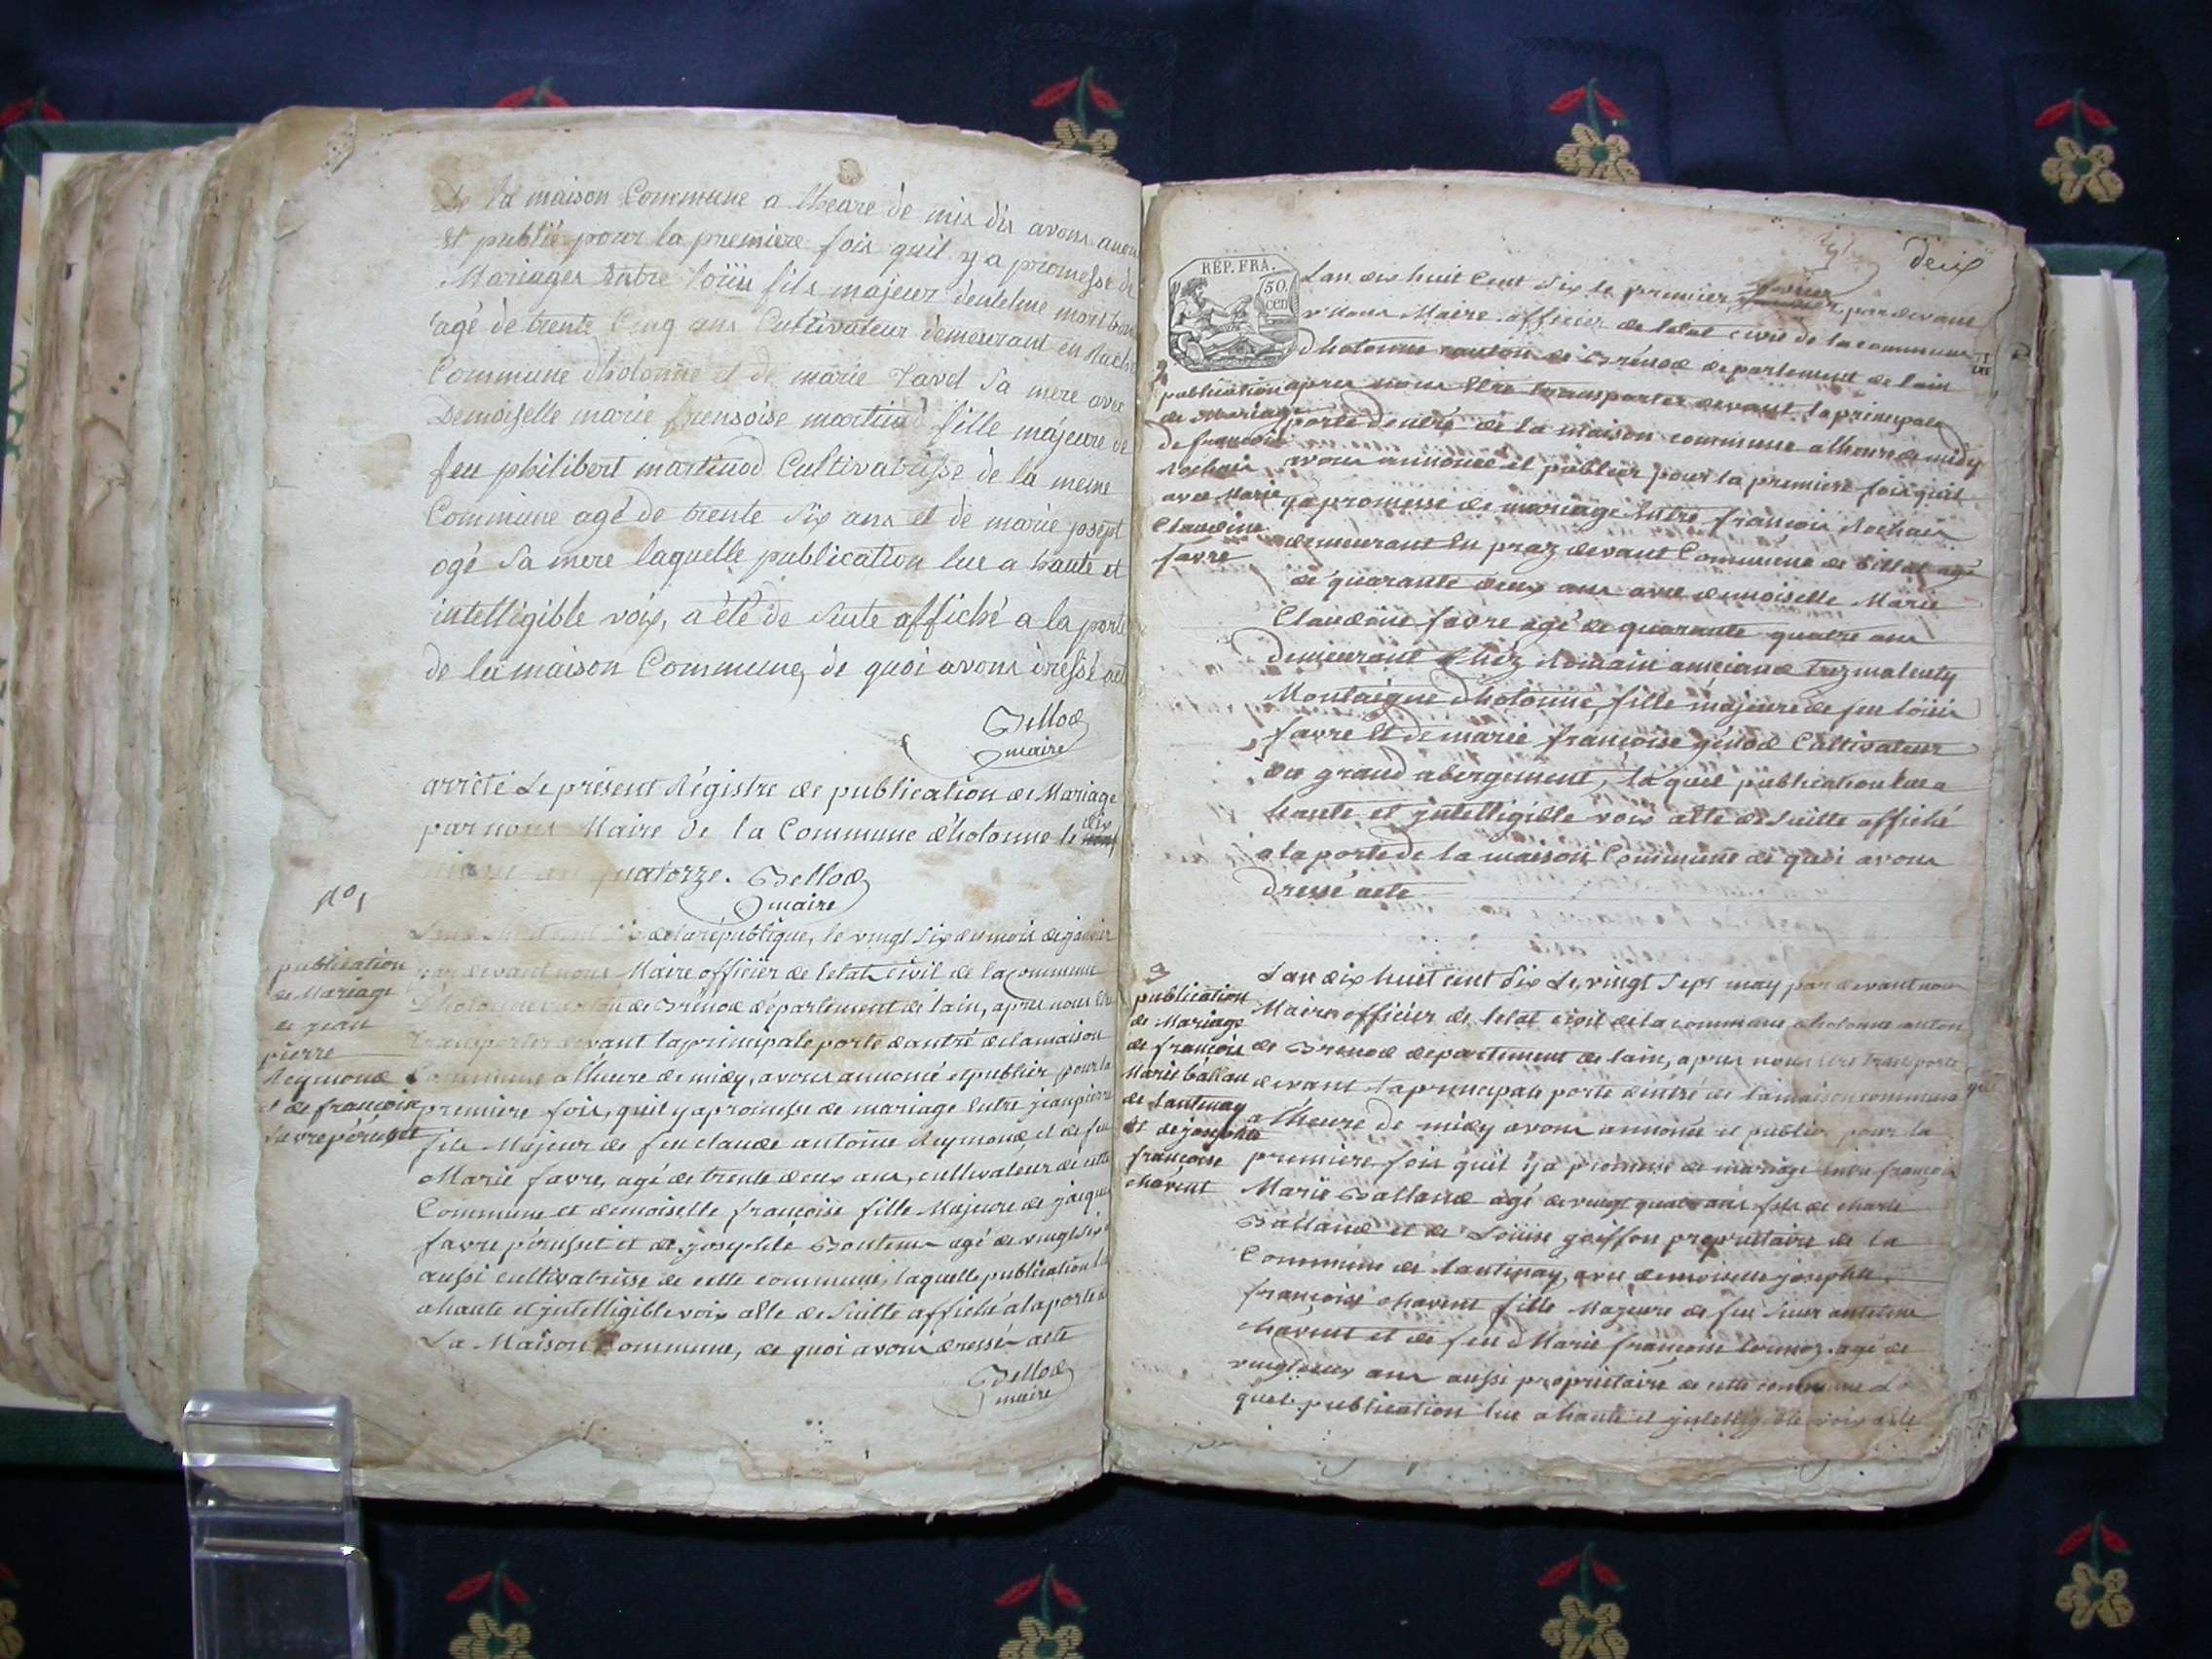 De la maison Commune a lheure de mis dis avons
Et publié pour la premiere fois quil y a promesse de
Mariages Entre loüis fils majeur
agé de trente Cinq ans Cultivateur demeurant en
Commune dholonne et de marie Tavel Sa mere avec
Demoiselle marie fransoise martinod fille majeure de
feu philibert martinod Cultivatrisse de la meme
Commune agé de trente Six ans et de marie
ogé Sa mere laquelle publication lue a haute et
intelligible voix, a été de Suite affiché a la porte
de la maison Commune, de quoi avons dressé
Bellod
maire
arrêté Le présent Régistre de publication de Mariage
par nous Maire de la Commune dholonne le dix
quatorze. Bellod
maire
No 1
publication
de Mariage
de jean
pierre
Reymond
et de françoise
favre pérusset
de la république, le vingt Six du mois de janvier
par devant nous Maire officier de letat civil de la Commune
de Brénod département de lain, apres nous être
transporter devant la principale porte dantré de la maison
Commune a lheure de midy, avons annoncé et publier pour la
premiere fois, quil y a promesse de mariage Entre jean pierre
fils Majeur de feu claude antoine Reymond, et de feu
Marie favre, agé de trente deux ans, cultivateur de cette
Commune et demoiselle françoise fille Majeure de jacques
favre pérusset et de josephte Bontems agé de vingt six
aussi cultivatrisse de cette commune, laquelle publication
a haute et jntelligible voix a été de Suitte affiché a la porte
La Maison Commune, de quoi avons dressé acte
Bellod
maire
deux
RÉP. FRA.
50.
cent
Lan dix huit Cent Six le premier fevrier par devant
nous Maire officier de letat civil de la commune
dholonne canton de Brénod departement de lain
apres nous Etre transporter devant la principale
porte dentré de la maison commune a lheure de midy
avons annoncé et publier pour la premiere fois quil
y a promesse de mariage Entre françois Rochaix
demeurant En praz devant Commune de Billiat agé
de quarante deux ans avec demoiselle Marie
Claudine favre agé de quarante quatre ans
demeurant chez Romain
Montaigne dholonne, fille majeure de feu loüis
favre Et de marie françoise génod Cultivateur
du grand abergement, la quel publication lue a
haute et jntelligible voix a été de Suitte affiché
a la porte de la maison Commune de quoi avons
dressé acte
2
publication
de Mariage
de françois
Rochaix
avec Marie
Claudine
favre
3
publication
de Mariage
de françois
Marie ballan
de lantenay
et de josephte
françoise
chavent
Lan dix huit cent Six Le vingt Sept may par devant nous
Maire officier de letat civil de la commune dholonne canton
de Brenod departement de lain, apres nous être transporté
devant la principale porte dentré de la maison commune
a lheure de midy avons annoncé et publier pour la
premiere fois quil y a promesse de mariage Entre françois
Marie Balland agé de vingt quatre ans fils de charle
Balland et de Loüise goiffon propriétaire de la
Commune de lantenay, avec demoiselle josephte
françoise chavent fille Majeure de feu Sieur antelme
chavent et de feu Marie françoise agé de
vingt deux ans aussi propriétaire de cette commune La
quel publication lue a haute et jntelligible voix a été